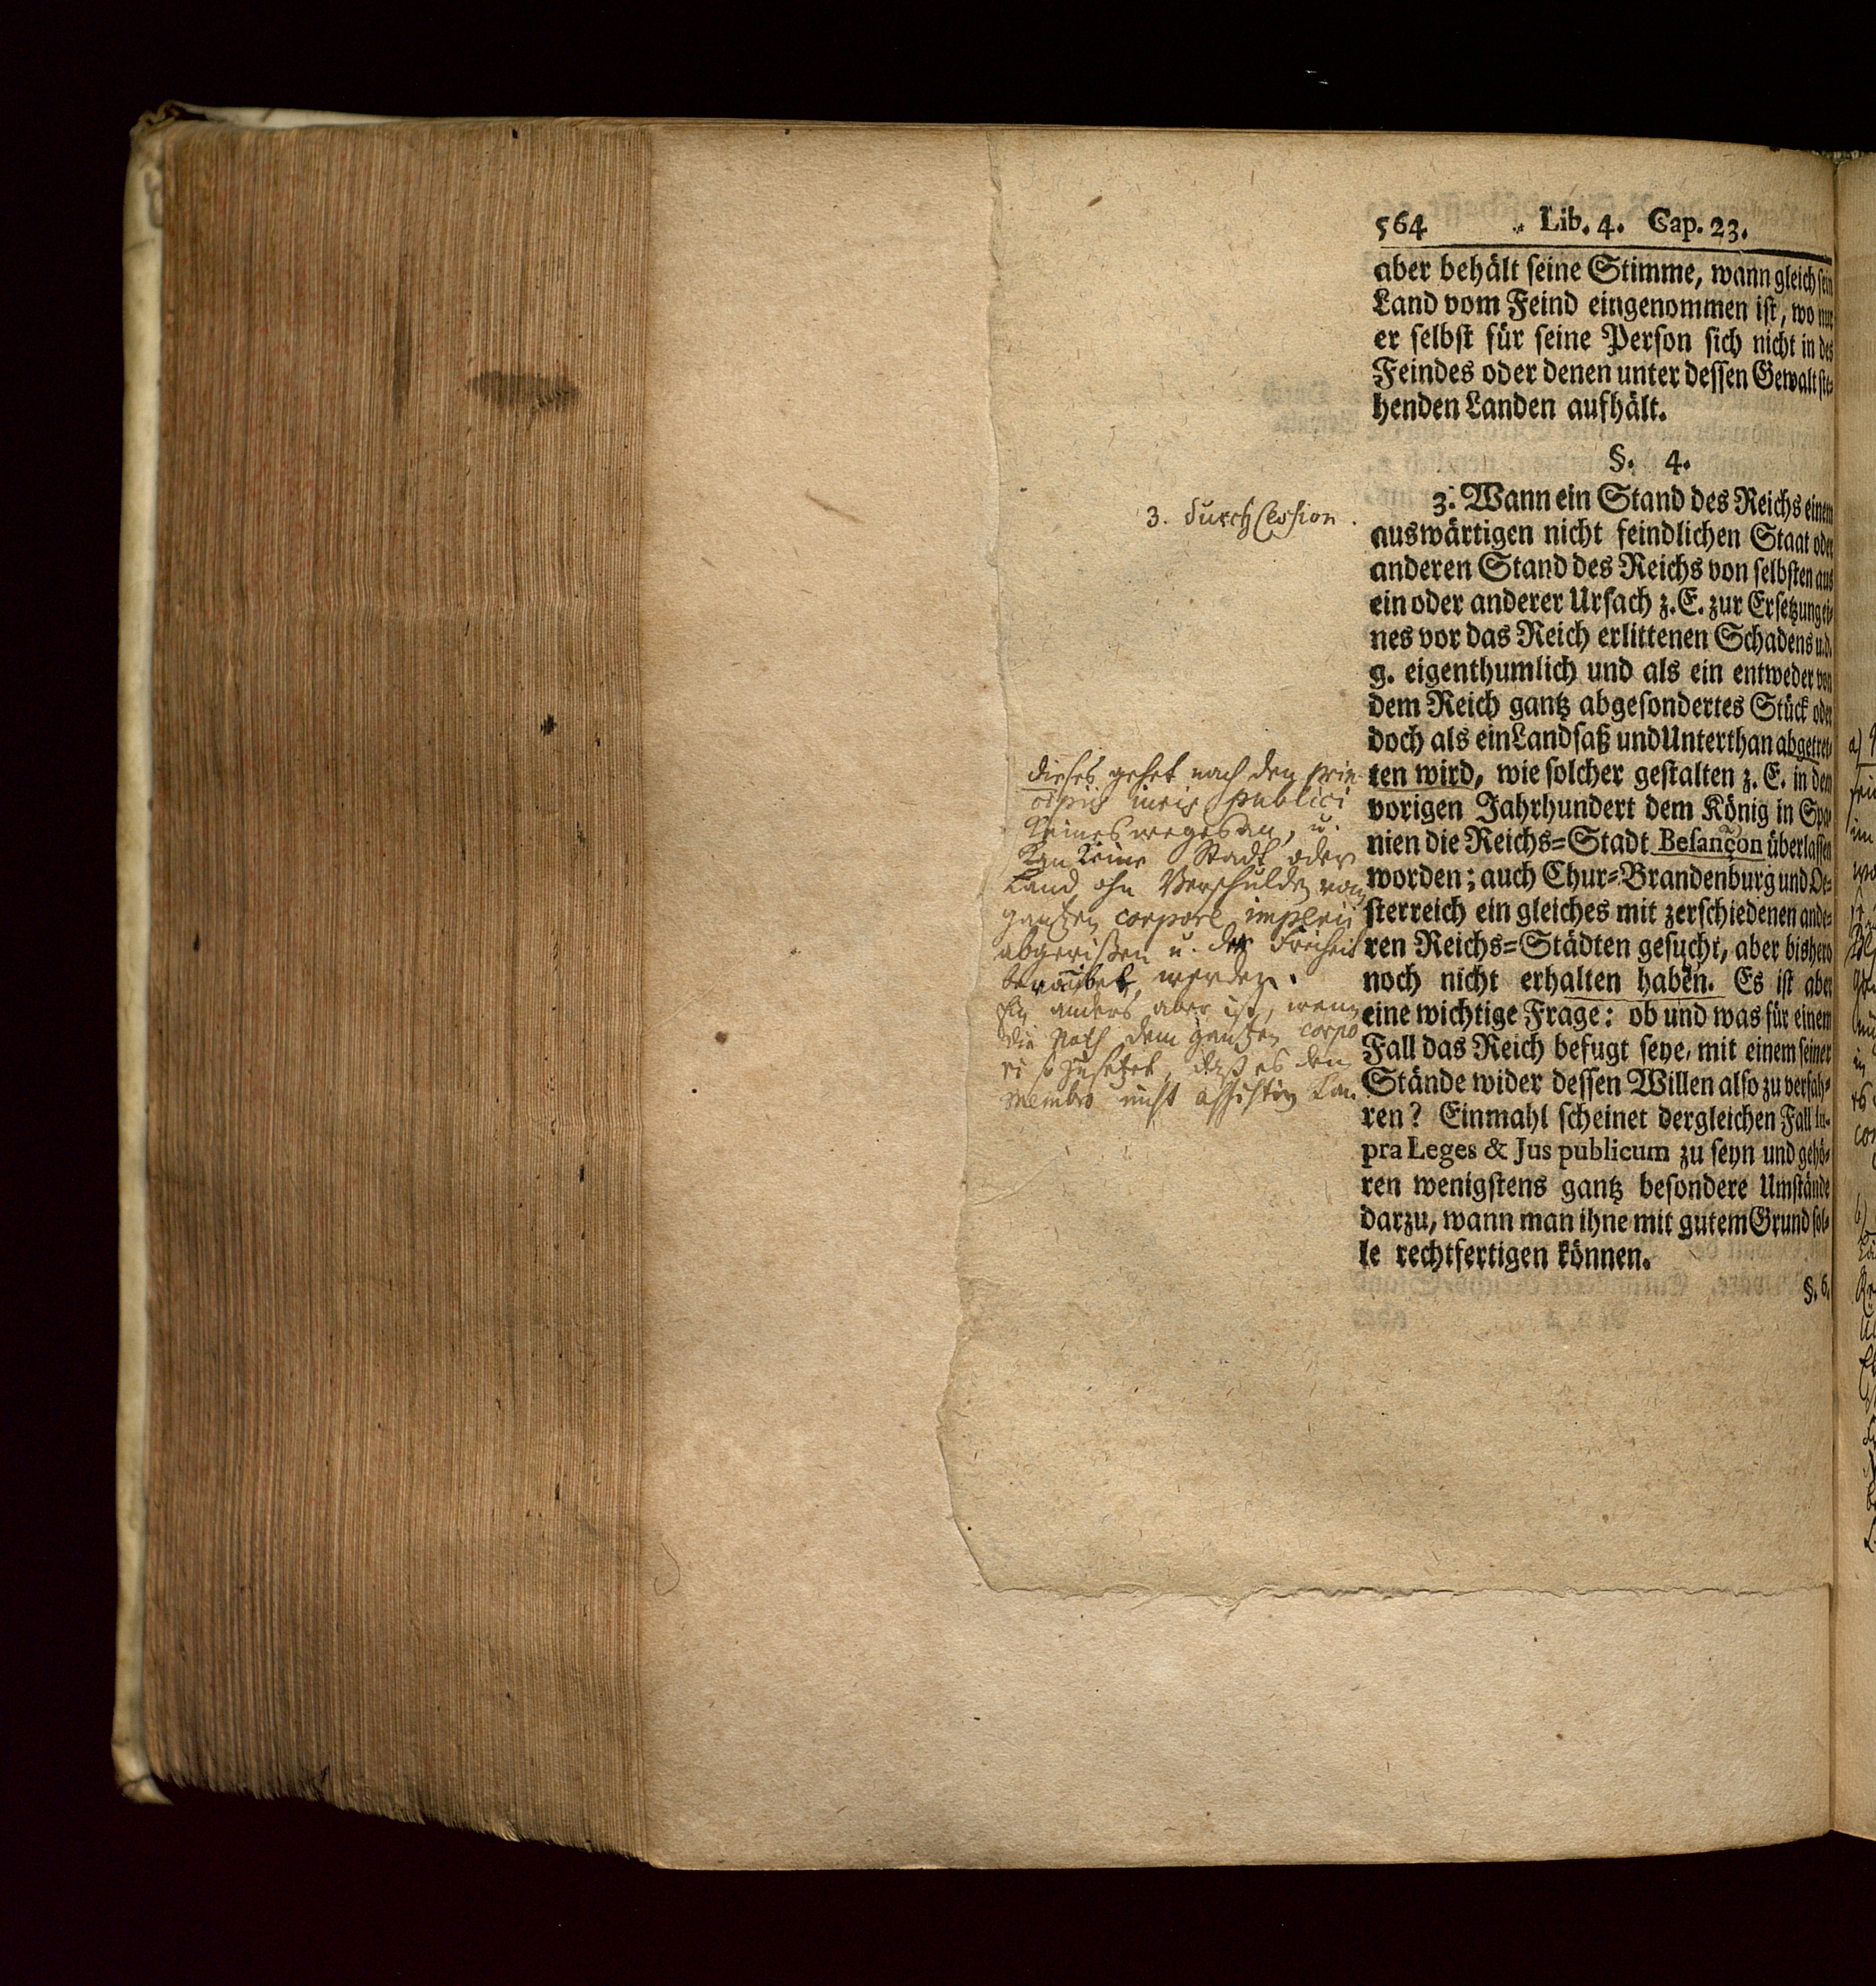 564 Lib. 4. Cap. 23.
aber behält seine Stimme, wann gleich sein
Land vom Feind eingenommen ist, wo nur
er selbst für seine Person sich nicht in des
Feindes oder denen unter dessen Gewalt ste-
henden Landen aufhält.
§. 4.
3. durch Cession.
3. Wann ein Stand des Reichs einem
auswärtigen nicht feindlichen Staat oder
anderen Stand des Reichs von selbsten aus
ein oder anderer Ursach z. E. zur Ersetzung ei-
nes vor das Reich erlittenen Schadens u. d.
g. eigenthumlich und als ein entweder von
dem Reich gantz abgesondertes Stück oder
doch als ein Landsaß und Unterthan abgetret-
ten wird, wie solcher gestalten z. E. in dem
vorigen Jahrhundert dem König in Spa-
nien die Reichs=Stadt Besançon überlassen
worden; auch Chur=Brandenburg und Oe-
sterreich ein gleiches mit zerschiedenen ande-
ren Reichs=Städten gesucht, aber bishero
noch nicht erhalten haben. Es ist aber
eine wichtige Frage: ob und was für einem
Fall das Reich befugt seye, mit einem seiner
Stände wider dessen Willen also zu verfah-
ren? Einmahl scheinet dergleichen Fall su-
pra Leges & Jus publicum zu seyn und gehö-
ren wenigstens gantz besondere Umstände
darzu, wann man ihne mit gutem Grund sol-
le rechtfertigen können.
§. 6.
dieses gehet nach den prin-
cipiis iuris publici
keineswegs an, u.
kan keine Stadt oder
Land ohn Verschulden vom
gantzen corpore imperii
abgerißen u. der Freiheit
beraubet werden.
Ein anders aber ist, wenn
die Noth dem gantzen corpo
ri so zusetzet, daß es dem
membro nicht assistiren kan